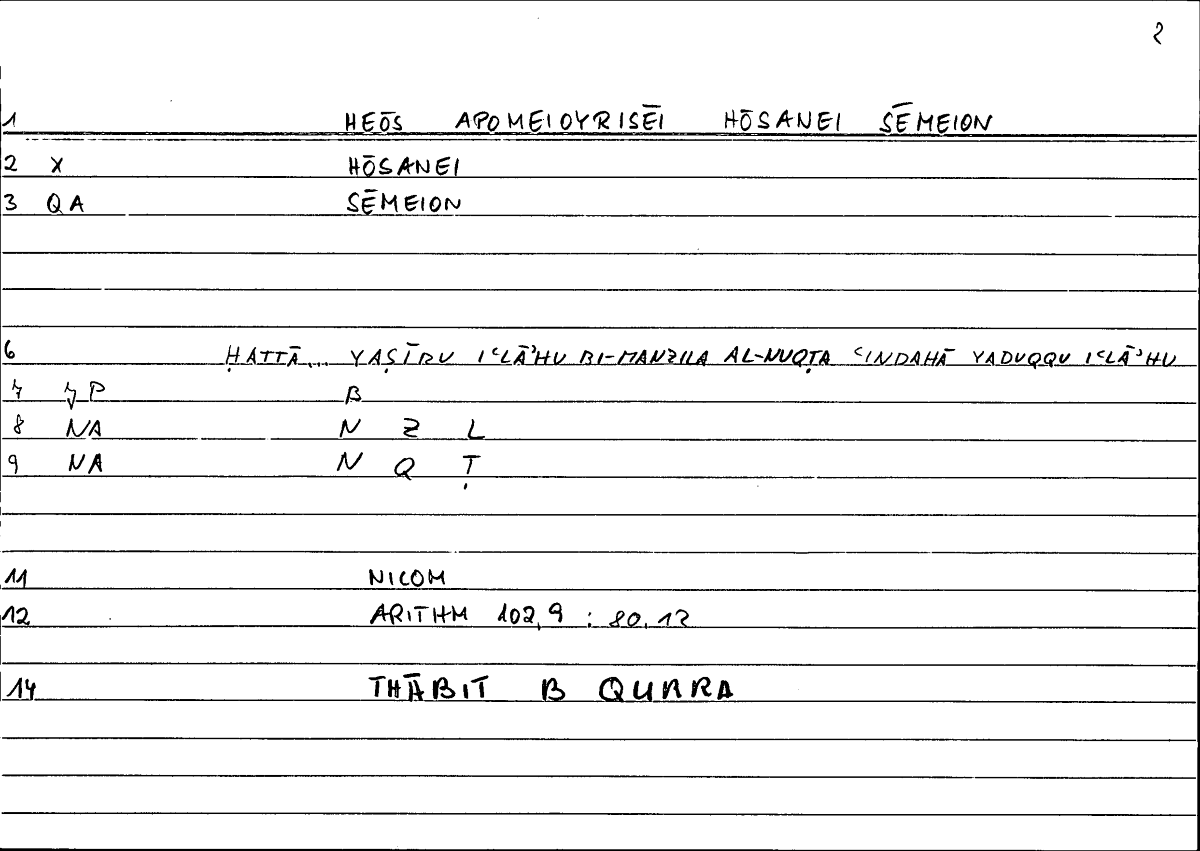 2
1 HEŌS APOMEIOYRISĒI HŌSANEI SĒMEION
2 X HŌSANEI
3 QA SĒMEION
6 ḤATTĀ... YAṢĪRU IʿLĀʾHU BI-MANZILA AL-NUQṬA ʿINDAHĀ YADUQQU IʿLĀʾHU
7 P B
8 NA N Z L
9 NA N Q Ṭ
11 NICOM
12 ARITHM 102,9 : 80,12
14 THĀBIT B QURRA